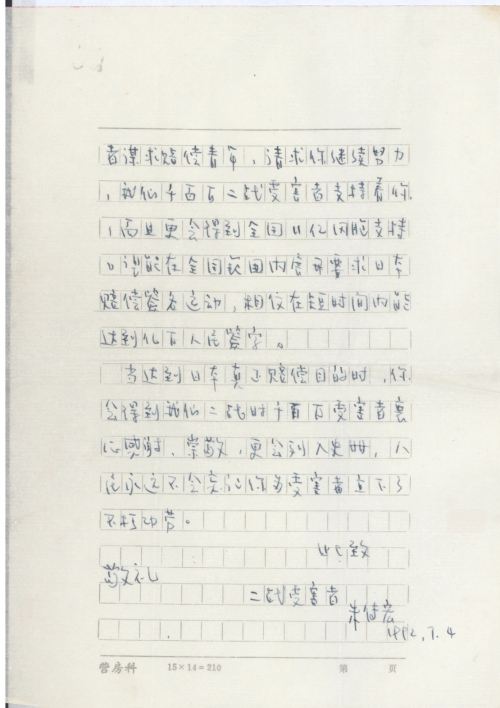 者谋求赔偿青年，请求你继续努力
，我们千百万二战受害者支持着你，
而且更会得到全国11亿同胞支持
。能在全国范围内要求日本
赔偿签名运动，相信在短时间内能
达到亿万人民签字。
当达到日本真正赔偿目的时，你
会得到我们二战时千百万受害者衷
心感谢、崇敬，更会列入史册，人
民永远不会忘记你为受害者立下了
不朽功劳。
此致
敬礼
二战受害者
朱
1992.7.4
管房科 15×14=210 第 页